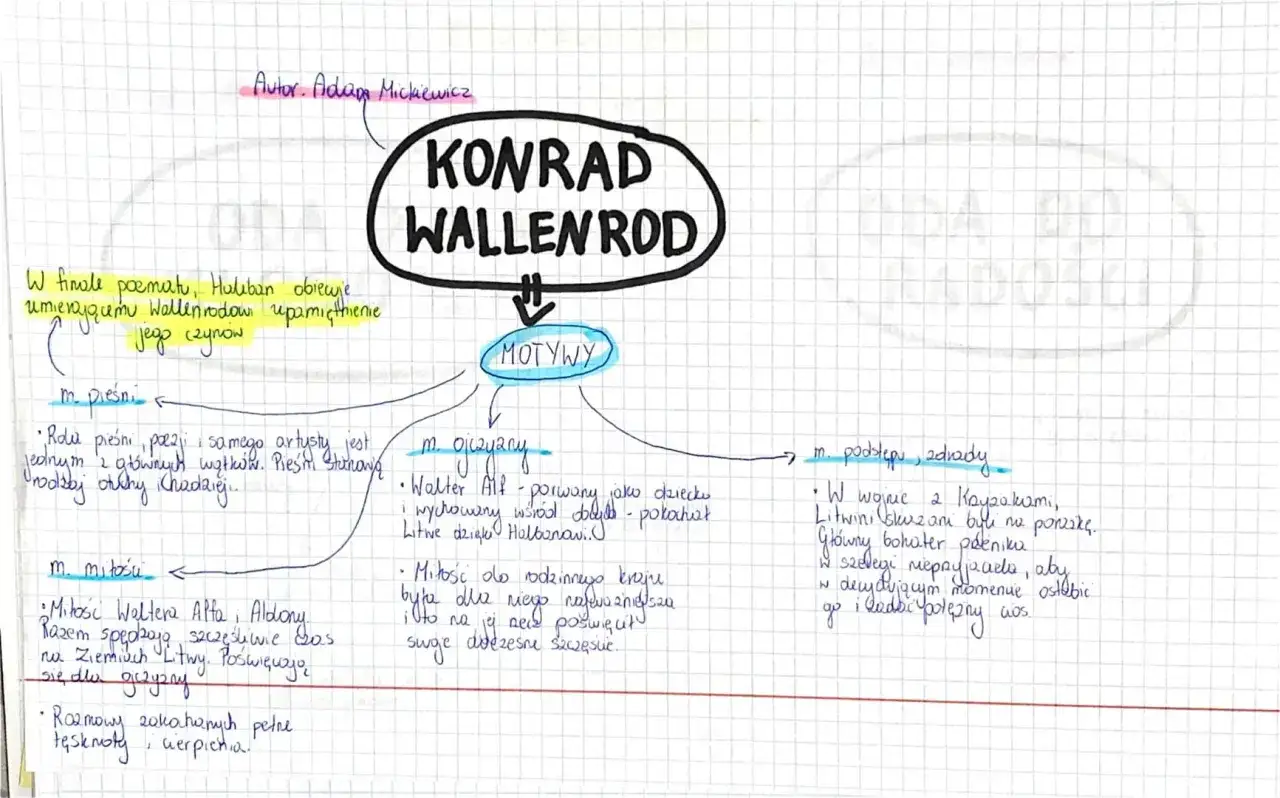 Autor. Adam Mickiewicz
KONRAD
WALLENROD
MOTYWY
W finale poematu, Halban obiecuje
umierającemu Wallenrodowi upamiętnienie
jego czynów
m. pieśni
• Rola pieśni, poezji i samego artysty jest
jednym z głównych wątków. Pieśni stanowią
rodzaj otuchy i nadziej.
m. miłości
• Miłość Waltera Alfa i Aldony.
Razem spędzają szczęśliwie czas
na Ziemiach Litwy. Poświęcają
się dla ojczyzny
• Rozmowy zakochanych pełne
tęsknoty i cierpienia.
m. ojczyzny
• Walter Alf - porwany jako dziecko
i wychowany wśród obcych - pokochał
Litwe dzięki Halbanowi.
• Miłość do rodzinnego kraju
była dla niego najważniejsza
i to na jej rzecz poświęcił
swoje doczesne szczęście.
m. podstępu, zdrady
• W wojnie z Krzyżakami,
Litwini skazani byli na porażkę.
Główny bohater przenika
w szeregi nieprzyjaciela, aby
w decydującym momencie osłabić
go i zadać potężny cios.